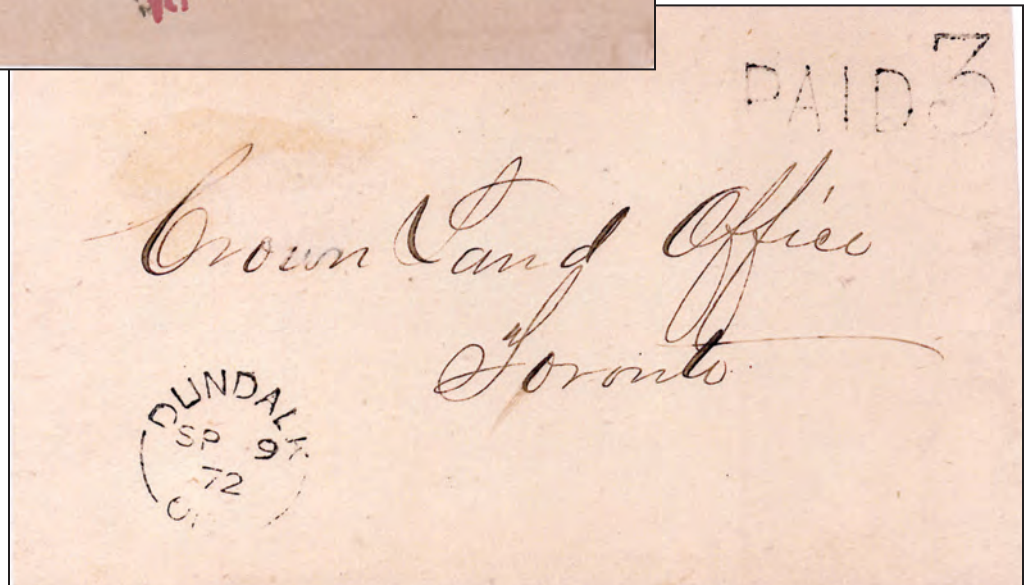 PAID 3
Crown Land Office
Toronto
DUNDALK
SP 9
72